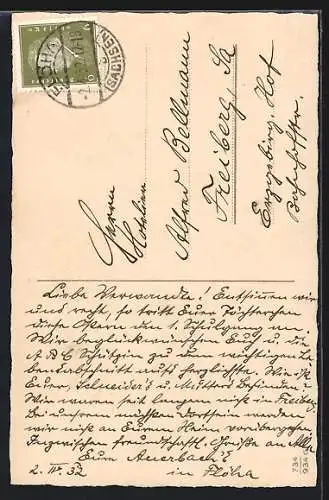 FLÖHA (SACHSEN)
Herrn
Hotelier
Alfred Bellmann
Freiberg, Sa
Erzgebirg. Hof
Bahnhofstr.
Liebe Verwandte! Entsinnen wir
uns recht, so tritt Euer Töchterchen
diese Ostern den 1. Schulgang an.
Wir beglückwünschen Euch u. die
A B C Schützin zu dem wichtigen Le-
bensabschnitt aufs herzlichste. Wie ist
Euer, Schneider's u. Mutters Befinden?
Wir waren seit langem nicht in Freiberg.
Bei unserem nächsten Dortsein werden
wir an Eurem Heim vorübergehen.
Inzwischen freundschaftl. Grüße an Alle
Eure Auerbach's
2. IV. 32 in Flöha
734
934